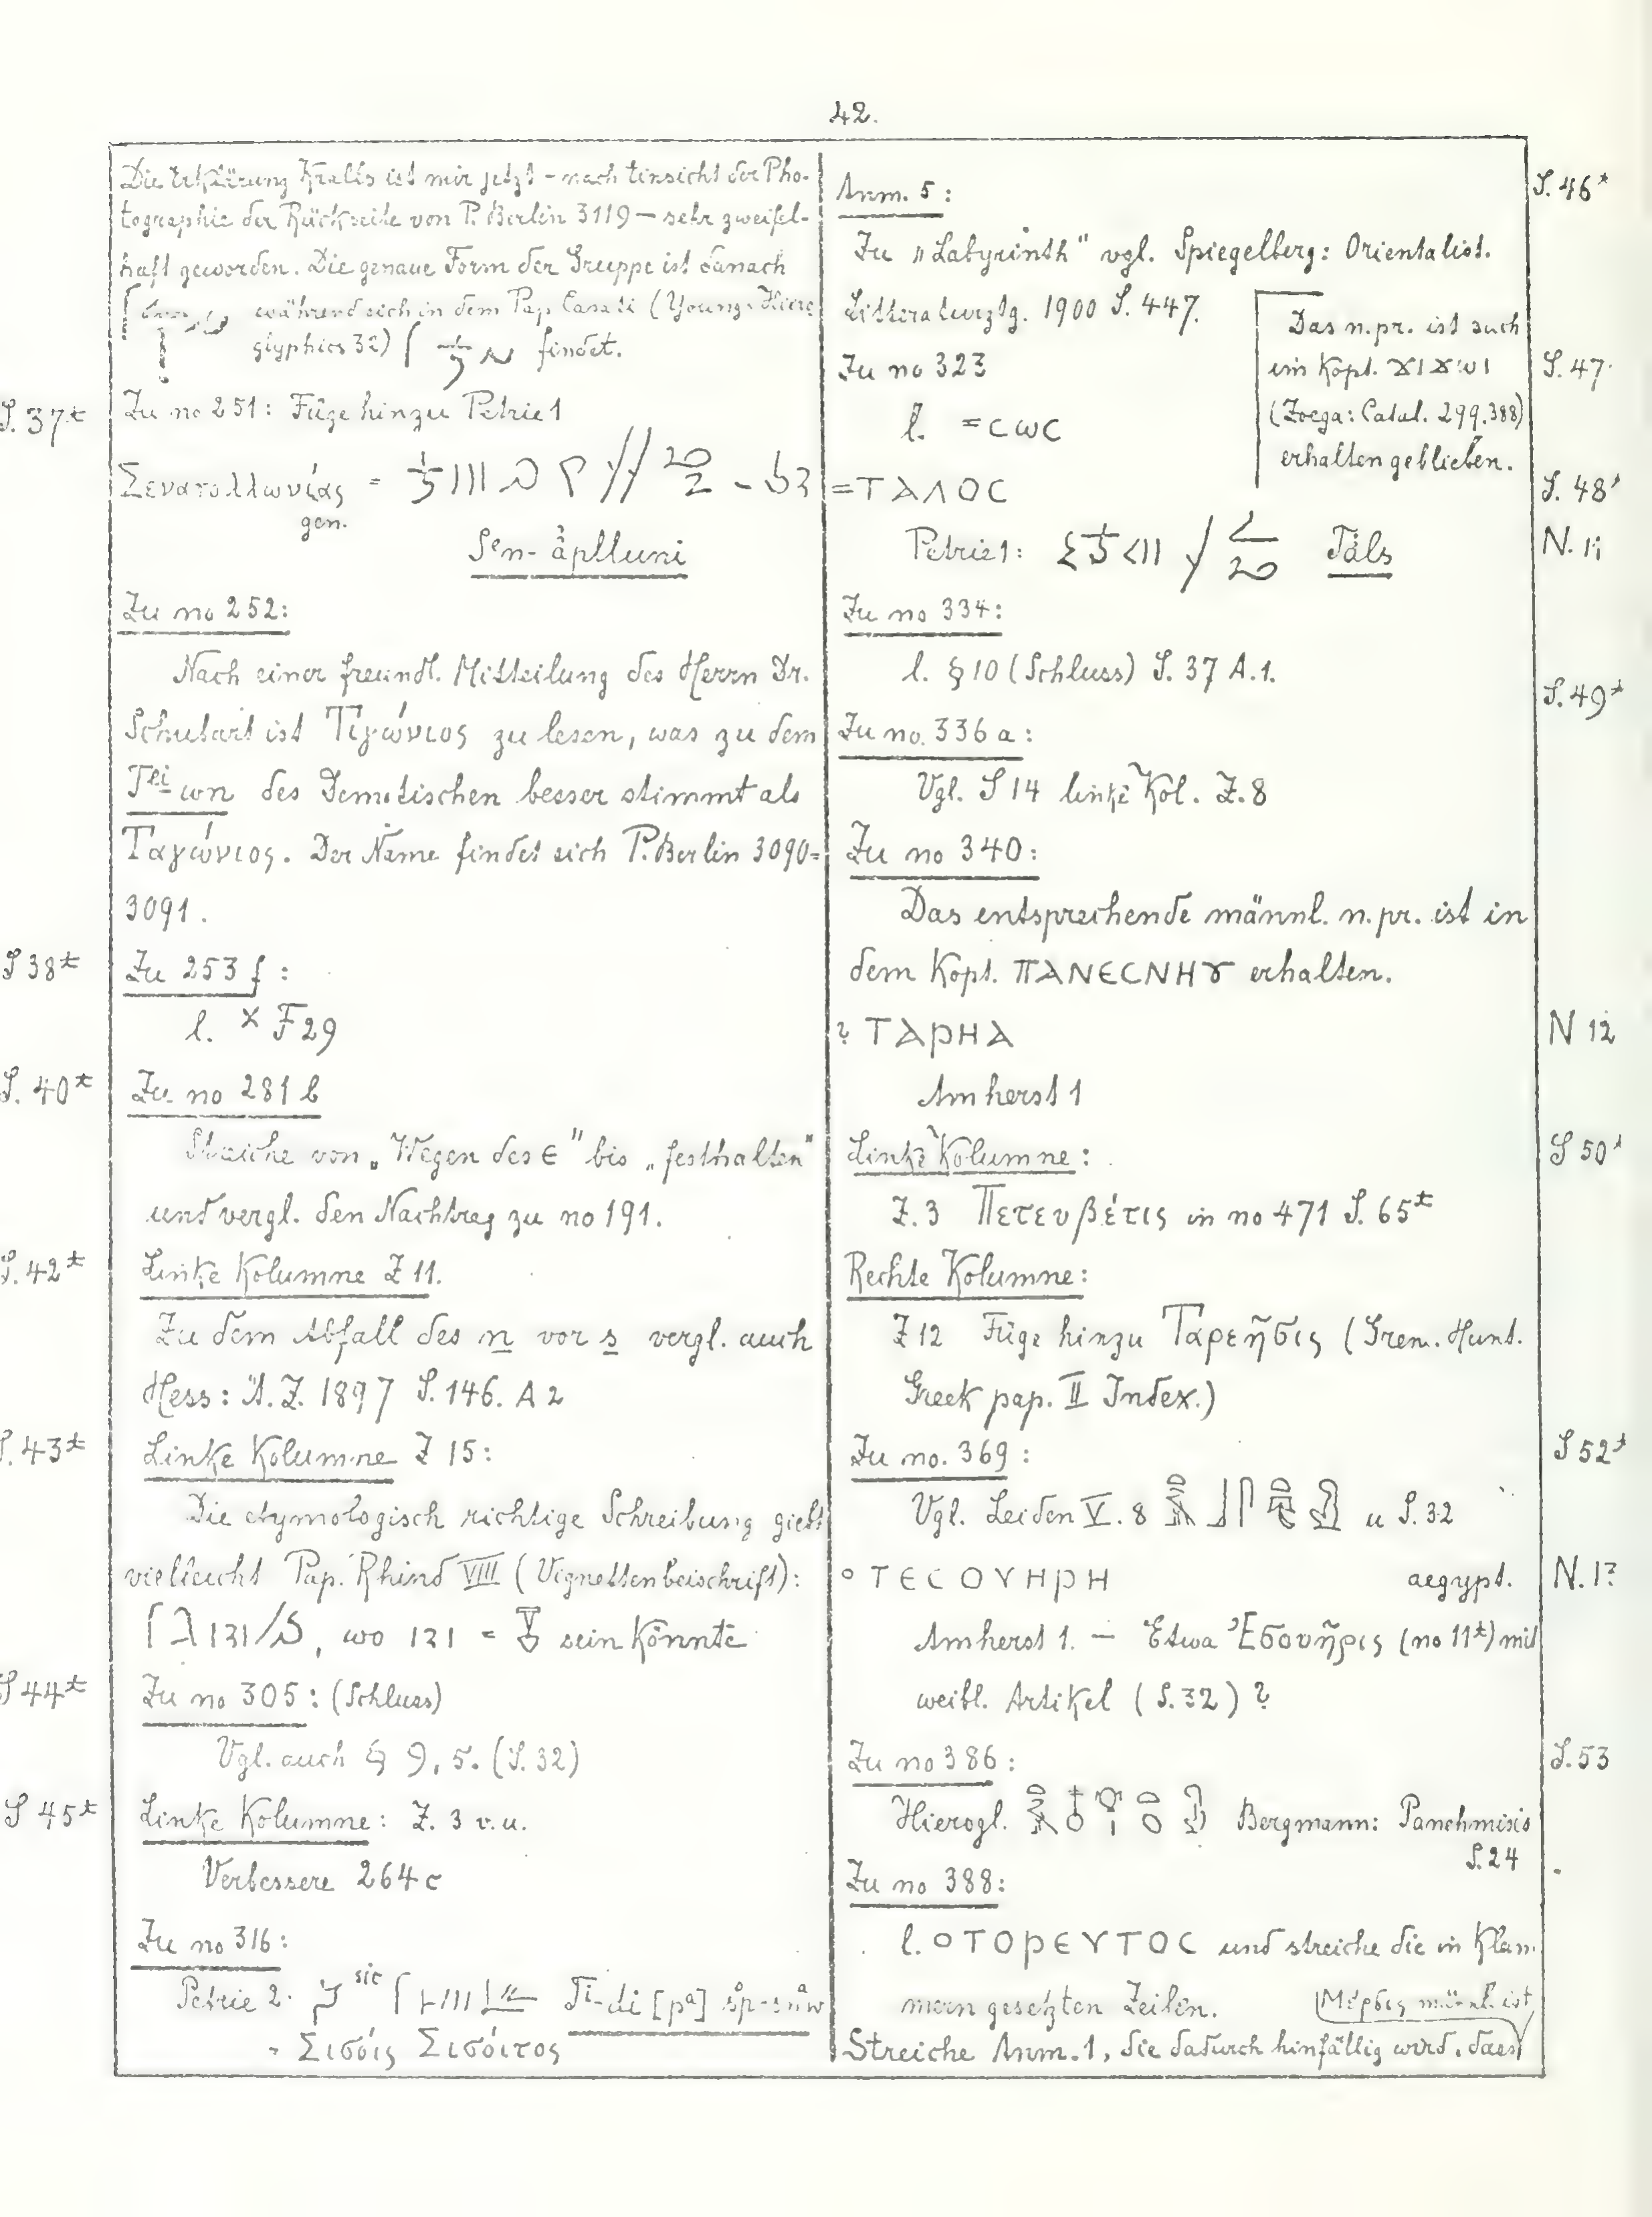 42.
Die Erklärung Kralls ist mir jetzt – nach Einsicht der Pho-
tographie der Rückseite von P. Berlin 3119 – sehr zweifel-
haft geworden. Die genaue Form der Gruppe ist danach
während sich in dem Pap. Casati (Young: Hiero
glyphics 32) findet.
S. 37*
Zu no 251: Füge hinzu Petrie 1
Σεναπολλωνίας =
gen.
Sen-åplluni
Zu no 252:
Nach einer freundl. Mitteilung des Herrn Dr.
Schubart ist Τιγώνιος zu lesen, was zu dem
Tei-wn des Demotischen besser stimmt als
Ταγώνιος. Der Name findet sich P. Berlin 3090=
3091.
S 38*
Zu 253 f:
l. × F 29
S. 40*
Zu no 281 b
Streiche von „Wegen des ϵ" bis „festhalten"
und vergl. den Nachtrag zu no 191.
S. 42*
Linke Kolumne Z 11.
Zu dem Abfall des n vor s vergl. auch
Hess: Ä.Z. 1897 S. 146. A 2
S. 43*
Linke Kolumne Z 15:
Die etymologisch richtige Schreibung giebt
vielleicht Pap. Rhind VIII (Vignettenbeischrift):
, wo = sein könnte
S 44*
Zu no 305: (Schluss)
Vgl. auch § 9, 5. (S. 32)
S 45*
Linke Kolumne: Z. 3 v.u.
Verbessere 264 c
Zu no 316:
Petrie 2. sic Ti-di [pa] šp-snåw
- Σισόις Σισόιτος
Anm. 5:
S. 46*
Zu „Labyrinth" vgl. Spiegelberg: Orientalist.
Litteraturztg. 1900 S. 447.
Zu no 323
S. 47
l. = ⲥⲱⲥ
Das n.pr. ist auch
im Kopt. ϪⲒϪⲰⲒ
(Zoega: Catal. 299. 388)
erhalten geblieben.
= ΤΑΛΟϹ
S. 48*
Petrie 1: Tåls
N. 11
Zu no 334:
l. § 10 (Schluss) S. 37 A. 1.
S. 49*
Zu no. 336 a:
Vgl. S 14 linke Kol. Z. 8
Zu no 340:
Das entsprechende männl. n.pr. ist in
dem Kopt. ⲠⲀⲚⲈⲤⲚⲎⲨ erhalten.
? ΤΑΡΗΑ
N 12
Amherst 1
Linke Kolumne:
S 50*
Z. 3 Πετευβέτις in no 471 S. 65*
Rechte Kolumne:
Z 12 Füge hinzu Ταρεῆσις (Gren. Hunt.
Greek pap. II Index.)
Zu no. 369:
S 52*
Vgl. Leiden V. 8 u S. 32
° ΤΕϹΟΥΗΡΗ aegypt.
N. 13
Amherst 1. – Etwa Ἐσουῆρις (no 11*) mit
weibl. Artikel (S. 32) ?
Zu no 386:
S. 53
Hierogl. Bergmann: Panehmisis
S. 24
Zu no 388:
l. ° ΤΟΡΕΥΤΟϹ und streiche die in Klam-
mern gesetzten Zeilen.
Streiche Anm. 1, die dadurch hinfällig wird, dass
Μέρσις männl. ist